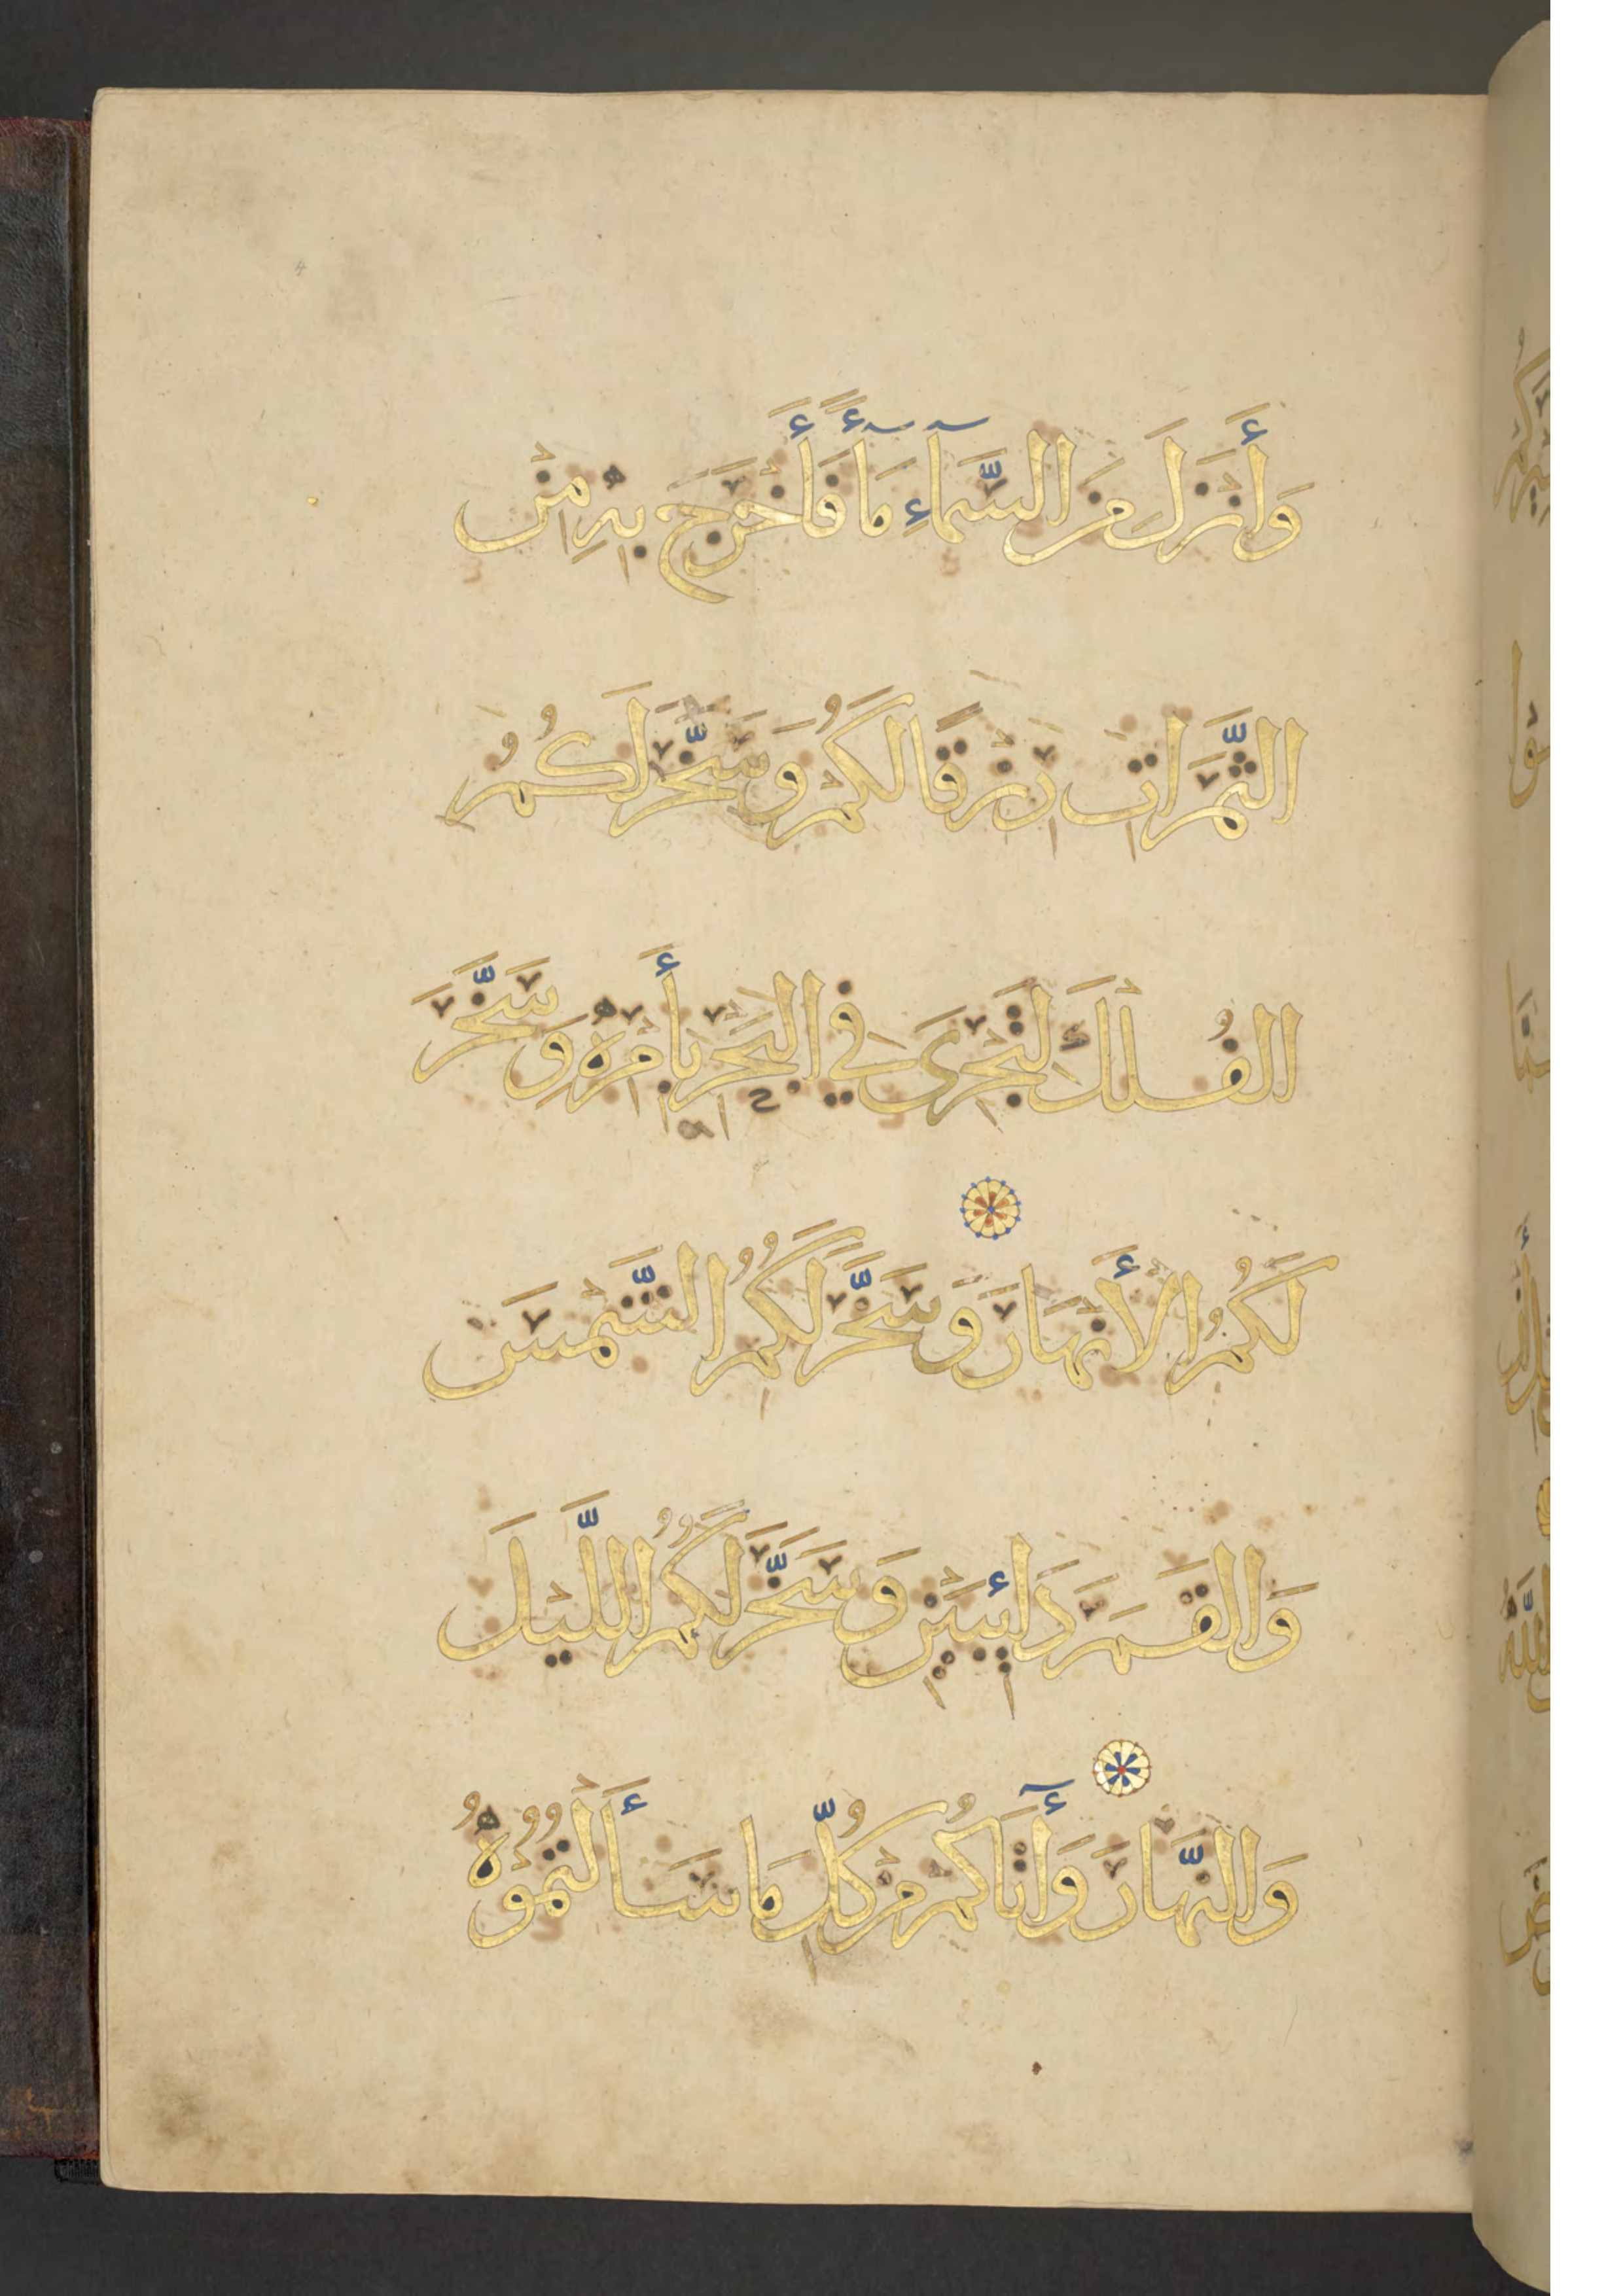 وَأَنْزَلَ مِنَ السَّمَآءِ مَآءً فَأَخْرَجَ بِهِ مِنْ
الثَّمَرَاتِ رِزْقًا لَكُمْ وَسَخَّرَ لَكُمُ
الْفُلْكَ لِتَجْرِيَ فِي الْبَحْرِ بِأَمْرِهِ وَسَخَّرَ
لَكُمُ الْأَنْهَارَ وَسَخَّرَ لَكُمُ الشَّمْسَ
وَالْقَمَرَ دَائِبَيْنِ وَسَخَّرَ لَكُمُ اللَّيْلَ
وَالنَّهَارَ وَآتَاكُمْ مِنْ كُلِّ مَا سَأَلْتُمُوهُ